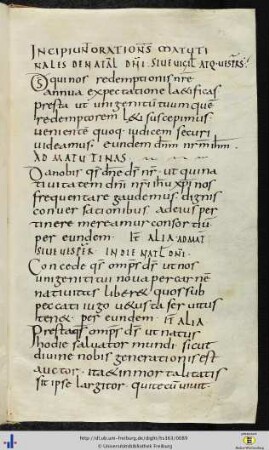 INCIPIUNT ORATIONES MATUTI
NALES DE NATAL DNI SIVE VIGIL ATQ; VESPRS
DS qui nos redemptionis nre
annua expectatione laetificas
presta ut unigenitum tuum que
redemptorem laeti suscepimus
veniente quoq; iudicem securi
videamus. eundem dnm nrm ihm
AD MATUTINAS
Da nobis qs dne ds nr ut qui na
tivitatem dni nri ihu xpi nos
frequentare gaudemus dignis
conversationibus ad eius per
tinere mereamur consortiu
per eundem IT ALIA AD MAT
SIVE VESPER IN DIE NATL DNI
Concede qs omps ds ut nos
unigeniti tui nova per carne
nativitas liberet quos sub
peccati iugo vetusta servitus
tenet. per eundem IT ALIA
Presta qs omps ds ut natus
hodie salvator mundi sicut
divine nobis generationis est
auctor ita et inmortalitatis
sit ipse largitor qui tecum vivit
http://dl.ub.uni-freiburg.de/diglit/hs363/0089
© Universitätsbibliothek Freiburg